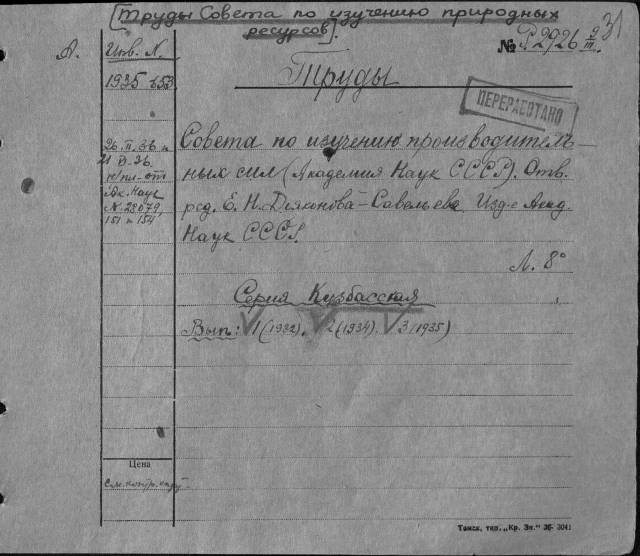 [Труды Совета по изучению природных
ресурсов].
31
А.
Инв. N.
№ P.2926 9/III.
1935 г.53.
Труды
ПЕРЕРАБОТАНО
26.II.36 и
Совета по изучению производитель-
ных сил (Академия Наук СССР). Отв.
Ак. Наук
ред. Е. Н. Дьяконова-Савельева Изд-е Акад.
N. 28079,
151 и 154
Наук СССР.
Л. 8°
Серия Кузбасская
Вып: 1 (1932), 2 (1934). 3 (1935)
Цена
См. контр. карт.
Томск, тип. „Кр. Зн." 36- 3041